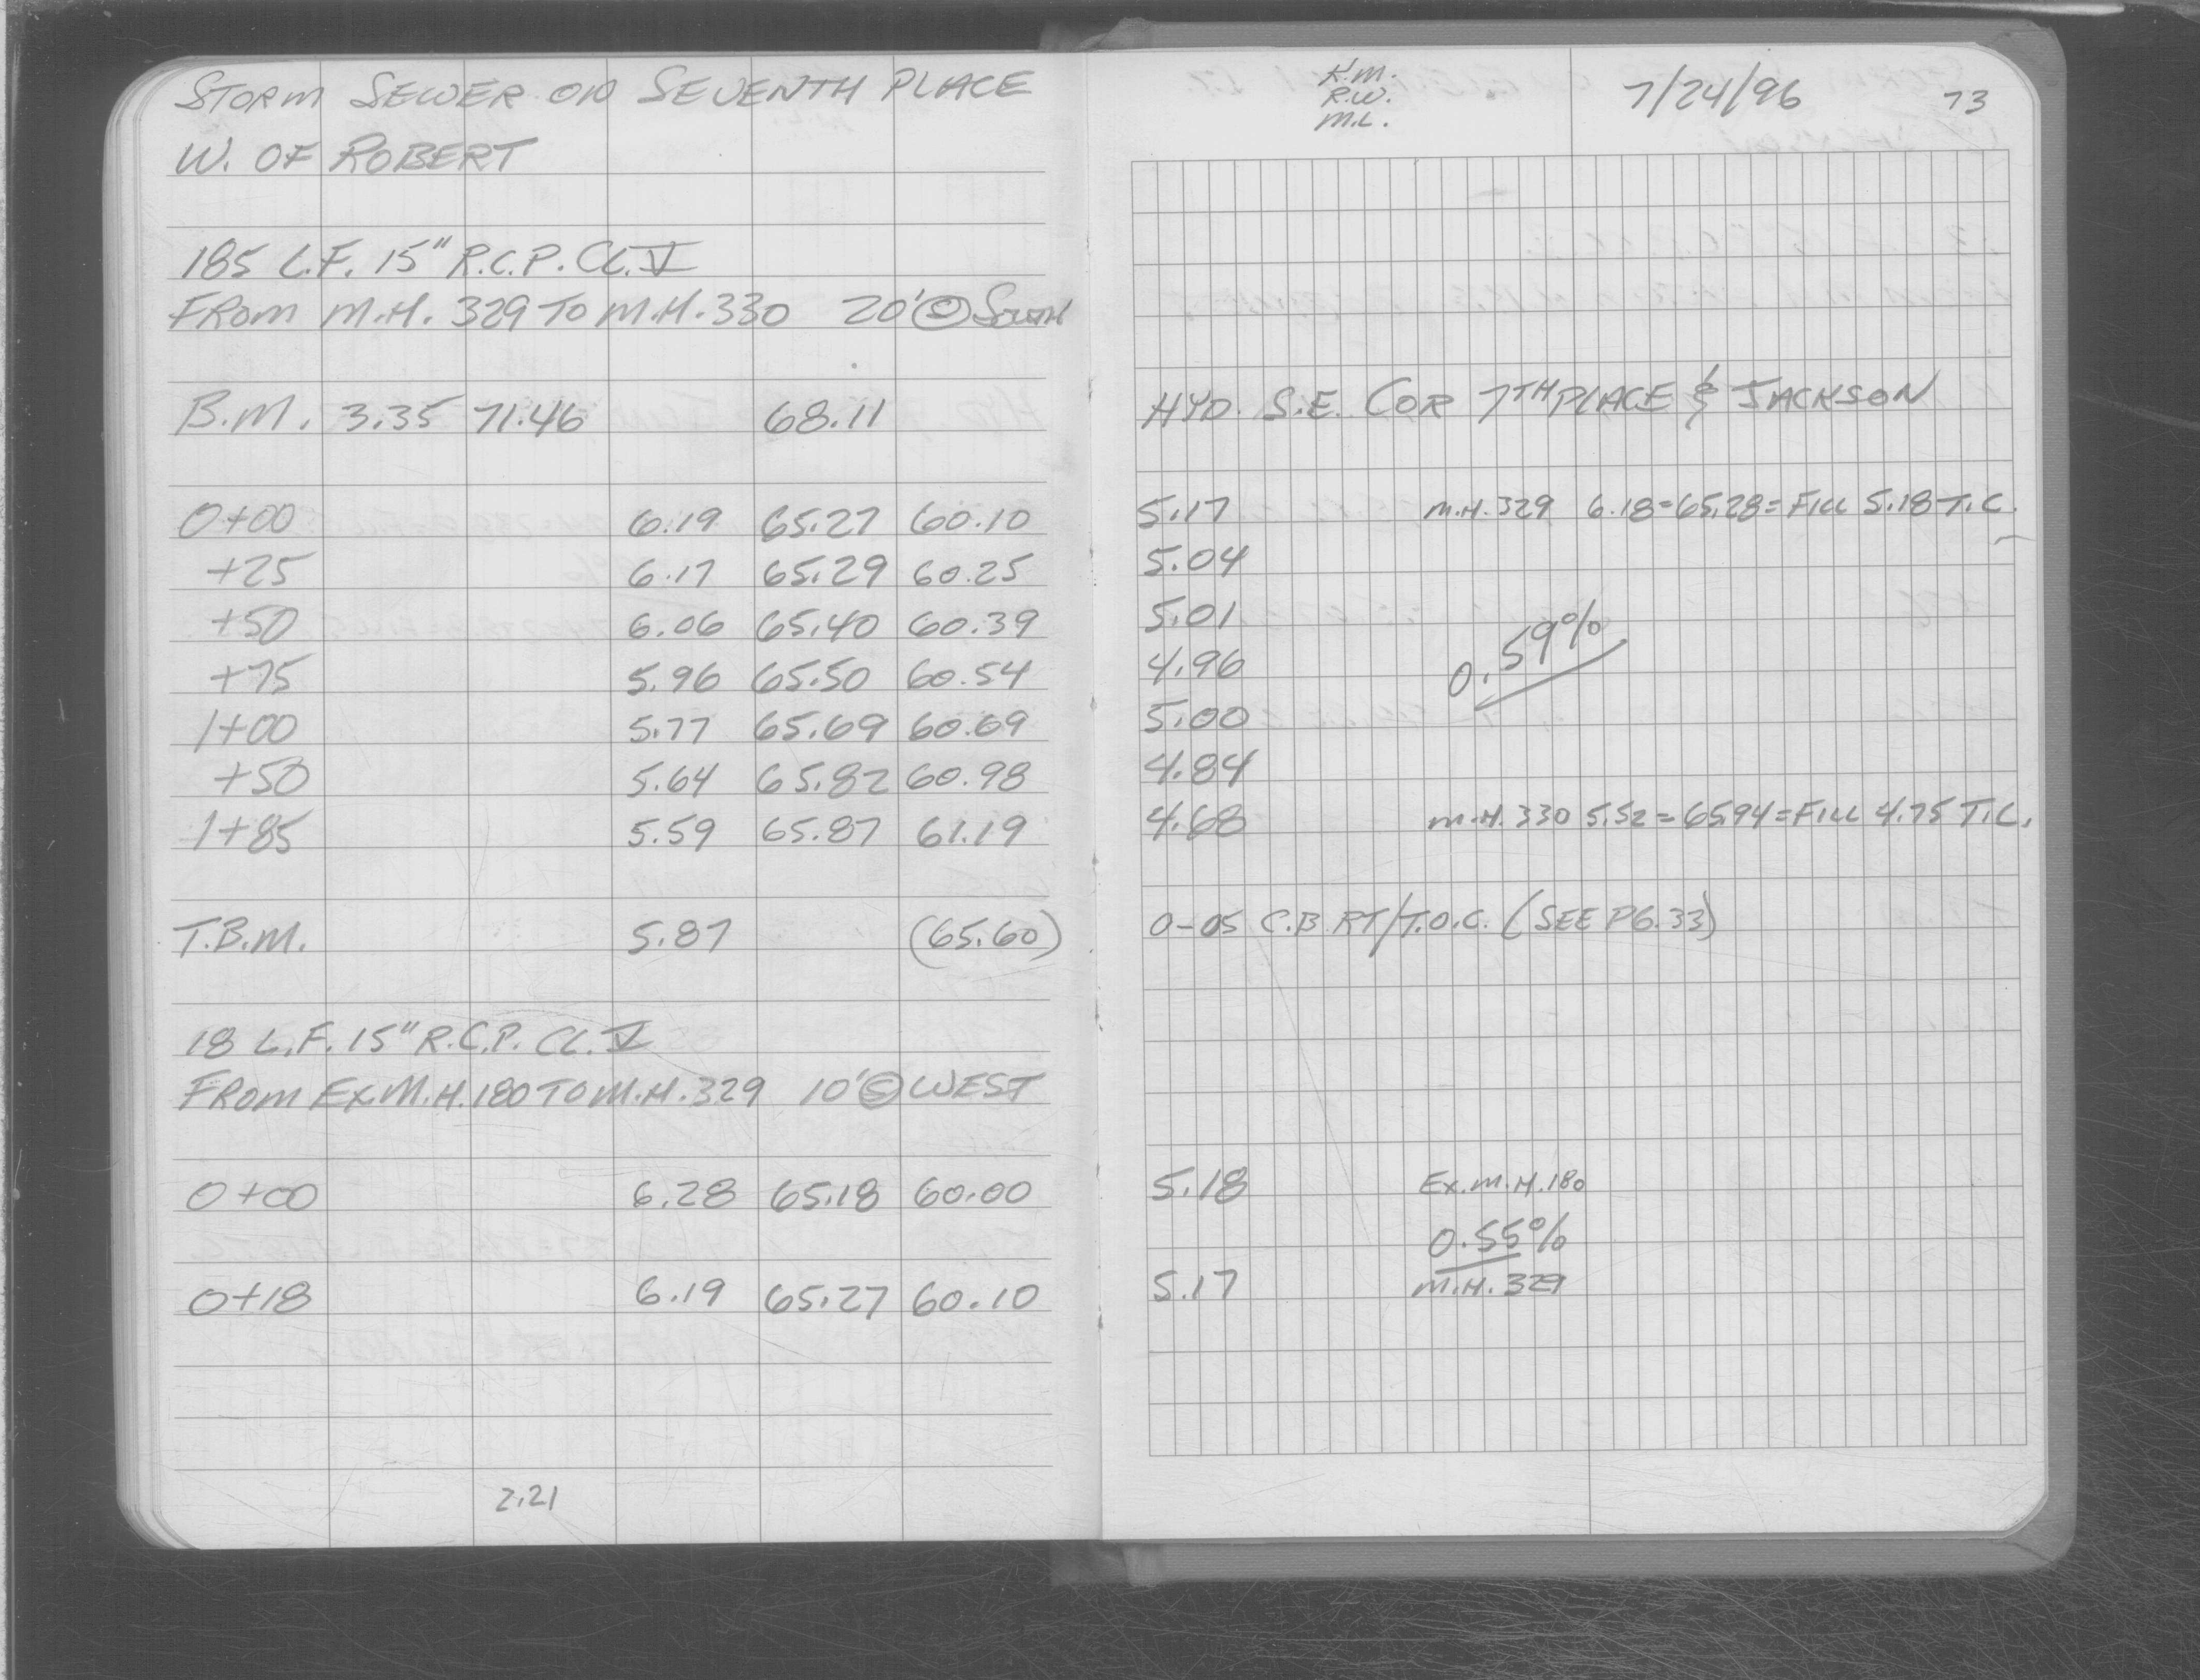 STORM SEWER ON SEVENTH PLACE
W. OF ROBERT
185 L.F. 15" R.C.P. CL. V
FROM M.H. 329 TO M.H. 330 20' © SOUTH
B.M. 3.35 71.46 68.11
0+00 6.19 65.27 60.10
+25 6.17 65.29 60.25
+50 6.06 65.40 60.39
+75 5.96 65.50 60.54
1+00 5.77 65.69 60.69
+50 5.64 65.82 60.98
1+85 5.59 65.87 61.19
T.B.M. 5.87 (65.60)
18 L.F. 15" R.C.P. CL. V
FROM EX M.H. 180 TO M.H. 329 10' © WEST
0+00 6.28 65.18 60.00
0+18 6.19 65.27 60.10
2.21
K.M.
R.W.
M.L.
7/24/96 73
HYD. S.E. COR 7TH PLACE & JACKSON
5.17 M.H. 329 6.18=65.28=FILL 5.18 T.C.
5.04
5.01
0.59%
4.96
5.00
4.84
4.68 M.H. 330 5.52=65.94=FILL 4.75 T.C.
0-05 C.B RT/T.O.C. (SEE PG. 33)
5.18 EX. M.H. 180
0.55%
5.17 M.H. 329